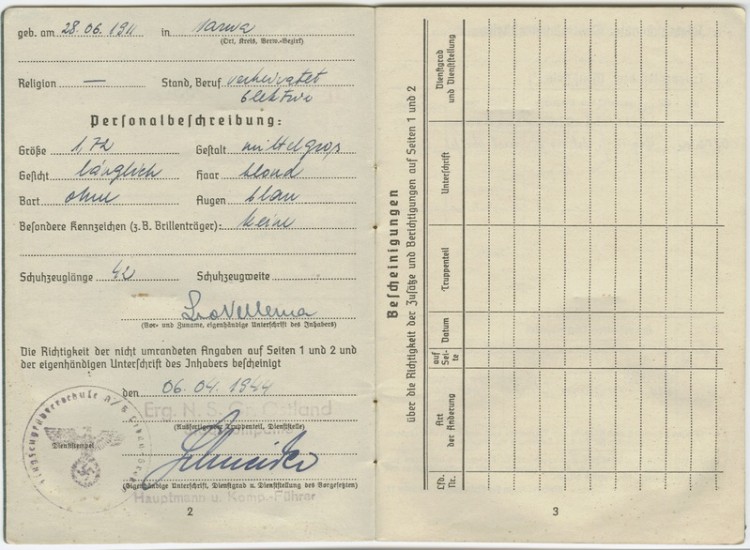 geb. am 28.06.1911 in Narwa
(Ort, Kreis, Verw.-Bezirk)
Religion — Stand, Beruf verheiratet
Personalbeschreibung:
Größe 1,72 Gestalt mittelgroß
Gesicht länglich Haar blond
Bart ohne Augen blau
Besondere Kennzeichen (z. B. Brillenträger): keine
Schuhzeuglänge 42 Schuhzeugweite
(Vor- und Zuname, eigenhändige Unterschrift des Inhabers)
Die Richtigkeit der nicht umrandeten Angaben auf Seiten 1 und 2 und
der eigenhändigen Unterschrift des Inhabers bescheinigt
den 06.04.1944
Erg. N. S. Gr. Ostland
(Ausfertigender Truppenteil, Dienststelle)
Dienststempel
Schneider
(Eigenhändige Unterschrift, Dienstgrad u. Dienststellung des Vorgesetzten)
Hauptmann u. Komp.-Führer
2
Bescheinigungen
über die Richtigkeit der Zusätze und Berichtigungen auf Seiten 1 und 2
Lfd. Nr.
Art der Änderung
auf Seite
Datum
Truppenteil
Unterschrift
Dienstgrad und Dienststellung
3